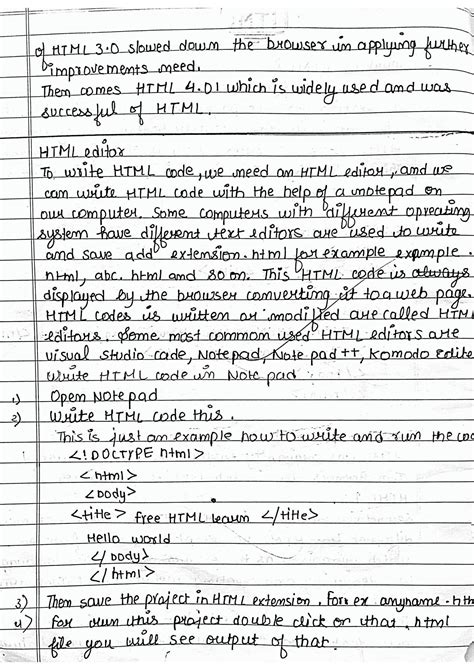 of HTML 3.0 slowed down the browser in applying further
improvements need.
Then comes HTML 4.01 which is widely used and was
successful of HTML.
HTML editor
To write HTML code, we need an HTML editor, and we
can write HTML code with the help of a notepad on
our computer. Some computers with different opreating
system have different text editors are used to write
and save add extension.html for example exmple.
html, abc. html and so on. This HTML code is always
displayed by the browser converting it to a web page.
HTML codes is written or modified are called HTM
editors. Some most common used HTML editors are
visual studio code, Notepad, Note pad ++, Komodo edite
Write HTML code in Note pad
1) Open Notepad
2) Write HTML code this.
This is just an example how to write and run the co
<! DOCTYPE html>
<html>
<body>
<title> free HTML learn </title>
Hello world
</body>
</html>
3) Then save the project in HTML extension. for ex anyname.
4) for run this project double click on that. html
file you will see output of that.